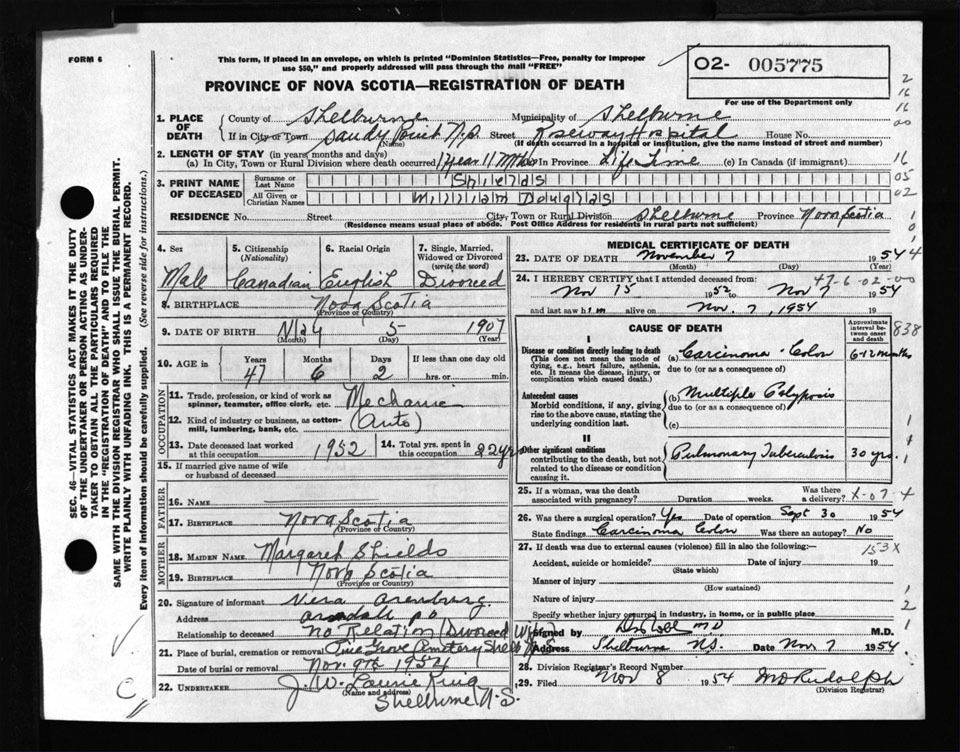 FORM 6
This form, if placed in an envelope, on which is printed "Dominion Statistics—Free, penalty for improper
use $50," and properly addressed will pass through the mail "FREE"
PROVINCE OF NOVA SCOTIA—REGISTRATION OF DEATH
O2- 005775
For use of the Department only
1. PLACE OF DEATH
County of Shelburne Municipality of Shelburne
If in City or Town Sandy Point N.S. Street Roseway Hospital House No.
(Name) (If death occurred in a hospital or institution, give the name instead of street and number)
2. LENGTH OF STAY (in years, months and days)
(a) In City, Town or Rural Division where death occurred 1 year 11 Mths (b) In Province Life Time (c) In Canada (if immigrant)
3. PRINT NAME OF DECEASED
Surname or Last Name Shields
All Given or Christian Names
RESIDENCE No. Street City, Town or Rural Division Shelburne Province Nova Scotia
(Residence means usual place of abode. Post Office Address for residents in rural parts not sufficient)
4. Sex Male
5. Citizenship (Nationality) Canadian
6. Racial Origin English
7. Single, Married, Widowed or Divorced (write the word) Divorced
8. BIRTHPLACE Nova Scotia
(Province or Country)
9. DATE OF BIRTH May 5 1907
(Month) (Day) (Year)
10. AGE in Years 47 Months 6 Days 2 If less than one day old hrs. or min.
OCCUPATION
11. Trade, profession, or kind of work as spinner, teamster, office clerk, etc. Mechanic
12. Kind of industry or business, as cotton-mill, lumbering, bank, etc. (Auto)
13. Date deceased last worked at this occupation 1952
14. Total yrs. spent in this occupation 22 yrs
15. If married give name of wife or husband of deceased
FATHER
16. NAME
17. BIRTHPLACE Nova Scotia
(Province or Country)
MOTHER
18. MAIDEN NAME Margaret Shields
19. BIRTHPLACE Nova Scotia
(Province or Country)
20. Signature of informant Vera
Address
Relationship to deceased No Relation (Divorced Wife)
21. Place of burial, cremation or removal Pine Grove Cemetery Shelb N.S.
Date of burial or removal Nov. 9th 1954
22. UNDERTAKER J. W. Laurie King
(Name and address)
Shelburne N.S.
MEDICAL CERTIFICATE OF DEATH
23. DATE OF DEATH November 7 1954
(Month) (Day) (Year)
24. I HEREBY CERTIFY that I attended deceased from:
Nov 15 1952 to Nov 7 1954
and last saw him alive on Nov. 7, 1954 19
47-6-02-00
CAUSE OF DEATH
Approximate interval between onset and death
838
I
Disease or condition directly leading to death (a) Carcinoma - Colon 6-12 months
(This does not mean the mode of dying, e.g., heart failure, asthenia, etc. It means the disease, injury, or complication which caused death.
due to (or as a consequence of)
Antecedent causes (b) Multiple Polyposis
Morbid conditions, if any, giving rise to the above cause, stating the underlying condition last.
due to (or as a consequence of)
(c)
II
Other significant conditions Pulmonary Tuberculosis 30 yrs.
contributing to the death, but not related to the disease or condition causing it.
25. If a woman, was the death associated with pregnancy? Duration weeks. Was there a delivery?
X-07-4
26. Was there a surgical operation? Yes Date of operation Sept 30 1954
State findings Carcinoma Colon Was there an autopsy? No
27. If death was due to external causes (violence) fill in also the following:—
153X
Accident, suicide or homicide? Date of injury 19
(State which)
Manner of injury
(How sustained)
Nature of injury
Specify whether injury occurred in industry, in home, or in public place
Signed by M.D.
Address Shelburne N.S. Date Nov 7 1954.
28. Division Registrar's Record Number
29. Filed Nov 8 1954 M D Rudolph
(Division Registrar)
SEC. 46—VITAL STATISTICS ACT MAKES IT THE DUTY
OF THE UNDERTAKER OR PERSON ACTING AS UNDER-
TAKER TO OBTAIN ALL THE PARTICULARS REQUIRED
IN THE "REGISTRATION OF DEATH" AND TO FILE IT
WITH THE DIVISION REGISTRAR WHO SHALL ISSUE THE BURIAL PERMIT.
WRITE PLAINLY WITH UNFADING INK. THIS IS A PERMANENT RECORD.
Every item of information should be carefully supplied. (See reverse side for instructions.)